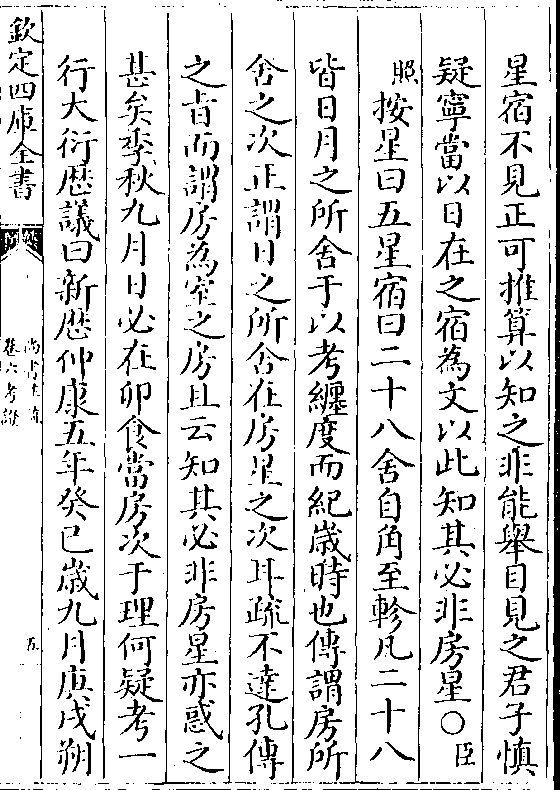 星宿不見正可推算以知之非能舉目見之君子慎
疑寧當以日在之宿為文以此知其必非房星○臣
照按星曰五星宿曰二十八舍自角至軫凡二十八
皆日月之所舍于以考纏度而紀歲時也傳謂房所
舍之次正謂日之所舍在房星之次耳疏不達孔傳
之㫖而謂房為室之房且云知其必非房星亦惑之
甚矣季秋九月日必在卯食當房次于理何疑考一
行大衍厯議曰新厯仲康五年癸巳歲九月庚戌朔
欽定四庫全書
尚書注疏
卷六考證
五